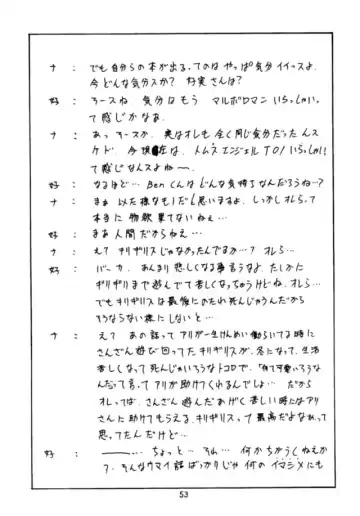 ナ : でも自分らの本が出る、てのは やっぱ気分イイっスよ、
今どんな気分スか? 好実さんは?
好 : そースね 気分はもう マルボロマン いらっしゃいっ
て感じかなぁ、
ナ : あっ そースか、実はオレも全く同じ気分だったんス
ケド、今現在は、トムス エンジェル T01 いらっしゃい!
って感じなんスよねー、
好 : なるほど… Benくんはどんな気持ちなんだろうね…?
ナ : まぁ 似た様なもんだと思いますよ、しっかしオレらって
本当に 物欲果てないねぇ…
好 : まぁ人間だからねぇ…
ナ : え? キリギリスじゃなかったんですか…? オレら…
好 : バーカ、あんまり悲しくなる事言うなよ、たしかに
ギリギリまで遊んでて苦しくなっちゃうけどね、オレら…
でもキリギリスは最後にのたれ死んじゃうんだから
そうならない様にしないと…
ナ : え? あの話って アリが一生けんめい働らいてる時に
さんざん遊び回ってたキリギリスが、冬になって、生活
苦しくなって死んじゃいそうなトコロで、「
んだって言って アリが助けてくれるんでしょ… だから
オレっては、さんざん遊んだあげく苦しい時にはアリ
さんに助けてもらえる、キリギリスって最高だよなぁって
思ってたんだけど…
好 : ――…、ちょっと… それ… 何かちがうくねえか
?、そんなウマイ話ばっかりじゃ 何の イマシメにも
53